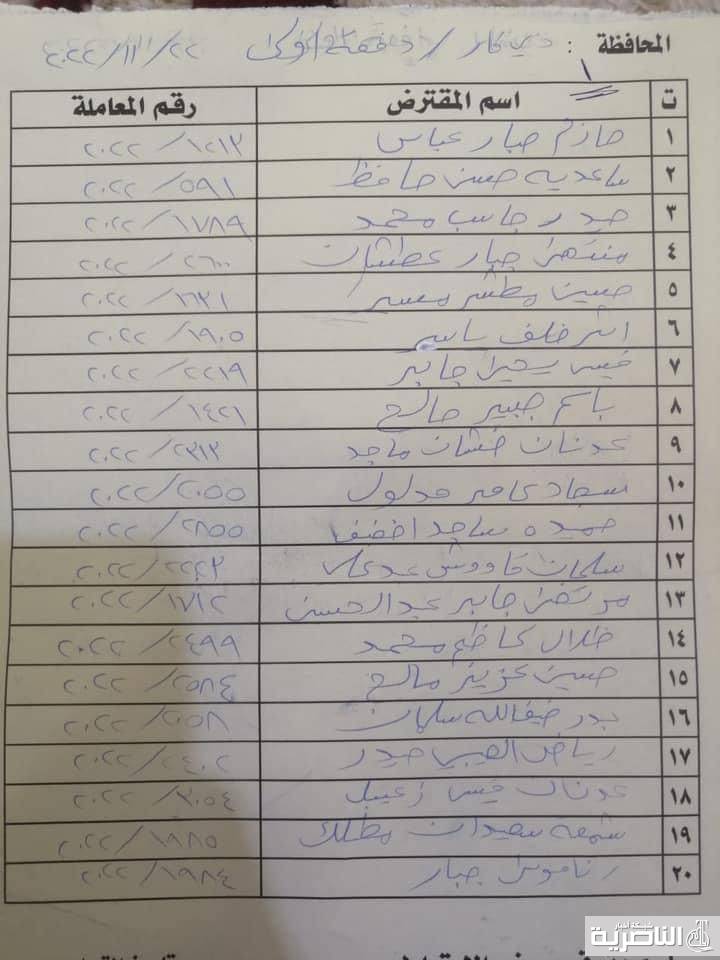 المحافظة : ذي قار / دفعة اولى ٢٠٢٢/١١/٢٢
١
ت اسم المقترض رقم المعاملة
١ حازم جبار عباس ١٢١٣/ ٢٠٢٢
٢ ساعدية حسن حافظ ٥٩١/ ٢٠٢٢
٣ حيدر جاسب محمد ١٧٨٩/ ٢٠٢٢
٤ منتهى جبار عطشان ٢٦٠٠/ ٢٠٢٢
٥ حسين مطشر ١٦٣١/ ٢٠٢٢
٦ خلف ياسر ١٩٠٥/ ٢٠٢٢
٧ قيس يحيى جابر ٢٢١٩/ ٢٠٢٢
٨ باسم جبير صالح ١٤٢١/ ٢٠٢٢
٩ عدنان خشان ماجد ٢٣١٣/ ٢٠٢٢
١٠ سجاد عامر مدلول ٢٠٥٥/ ٢٠٢٢
١١ حميده ساجد ٢٨٥٥/ ٢٠٢٢
١٢ سلمان ٢٢٢٣/ ٢٠٢٢
١٣ مرتضى جابر عبد الحسن ١٧١٢/ ٢٠٢٢
١٤ طلال كاظم محمد ٢٤٩٩/ ٢٠٢٢
١٥ حسين عزيز صالح ٢٥٨٤/ ٢٠٢٢
١٦ بدر ضيف الله سلمان ٢٠٥٨/ ٢٠٢٢
١٧ رياض حيدر ٢٤٠٢/ ٢٠٢٢
١٨ عدنان قيس زغيبل ٣٠٥٤/ ٢٠٢٢
١٩ شمعه سعيدان مطلك ١٩٨٥/ ٢٠٢٢
٢٠ جبار ١٩٨٤/ ٢٠٢٢
شبكة أخبار الناصرية